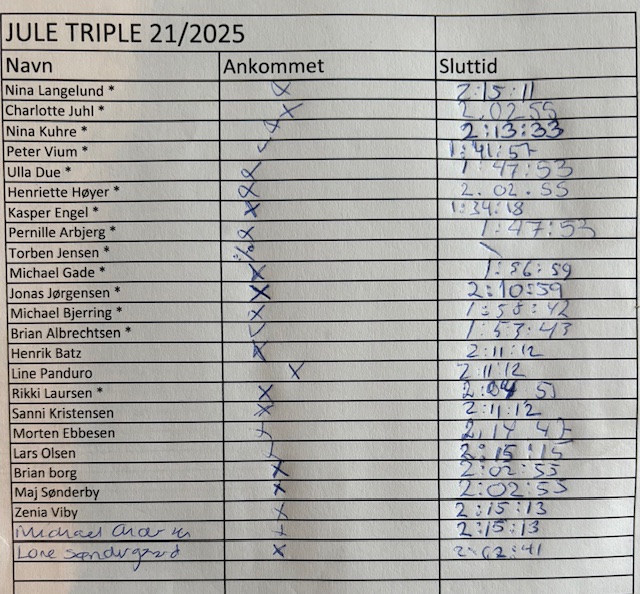 JULE TRIPLE 21/2025
Navn Ankommet Sluttid
Nina Langelund * X 2:15:11
Charlotte Juhl * X 2.02.55
Nina Kuhre * X 2:13:33
Peter Vium * ✓ 1:41:57
Ulla Due * X 1:47:53
Henriette Høyer * X 2.02.55
Kasper Engel * X 1:34:18
Pernille Arbjerg * X 1:47:53
Torben Jensen * % \
Michael Gade * X 1:56:59
Jonas Jørgensen * X 2:10:59
Michael Bjerring * X
Brian Albrechtsen * 1:53:43
Henrik Batz X 2:11:12
Line Panduro X 2:11:12
Rikki Laursen * X 2:04 51
Sanni Kristensen X 2:11:12
Morten Ebbesen X
Lars Olsen 2:15:15
Brian borg X 2:02:55
Maj Sønderby X 2:02:55
Zenia Viby X 2:15:13
Michael X 2:15:13
Lone Søndergaard X 2:02:41